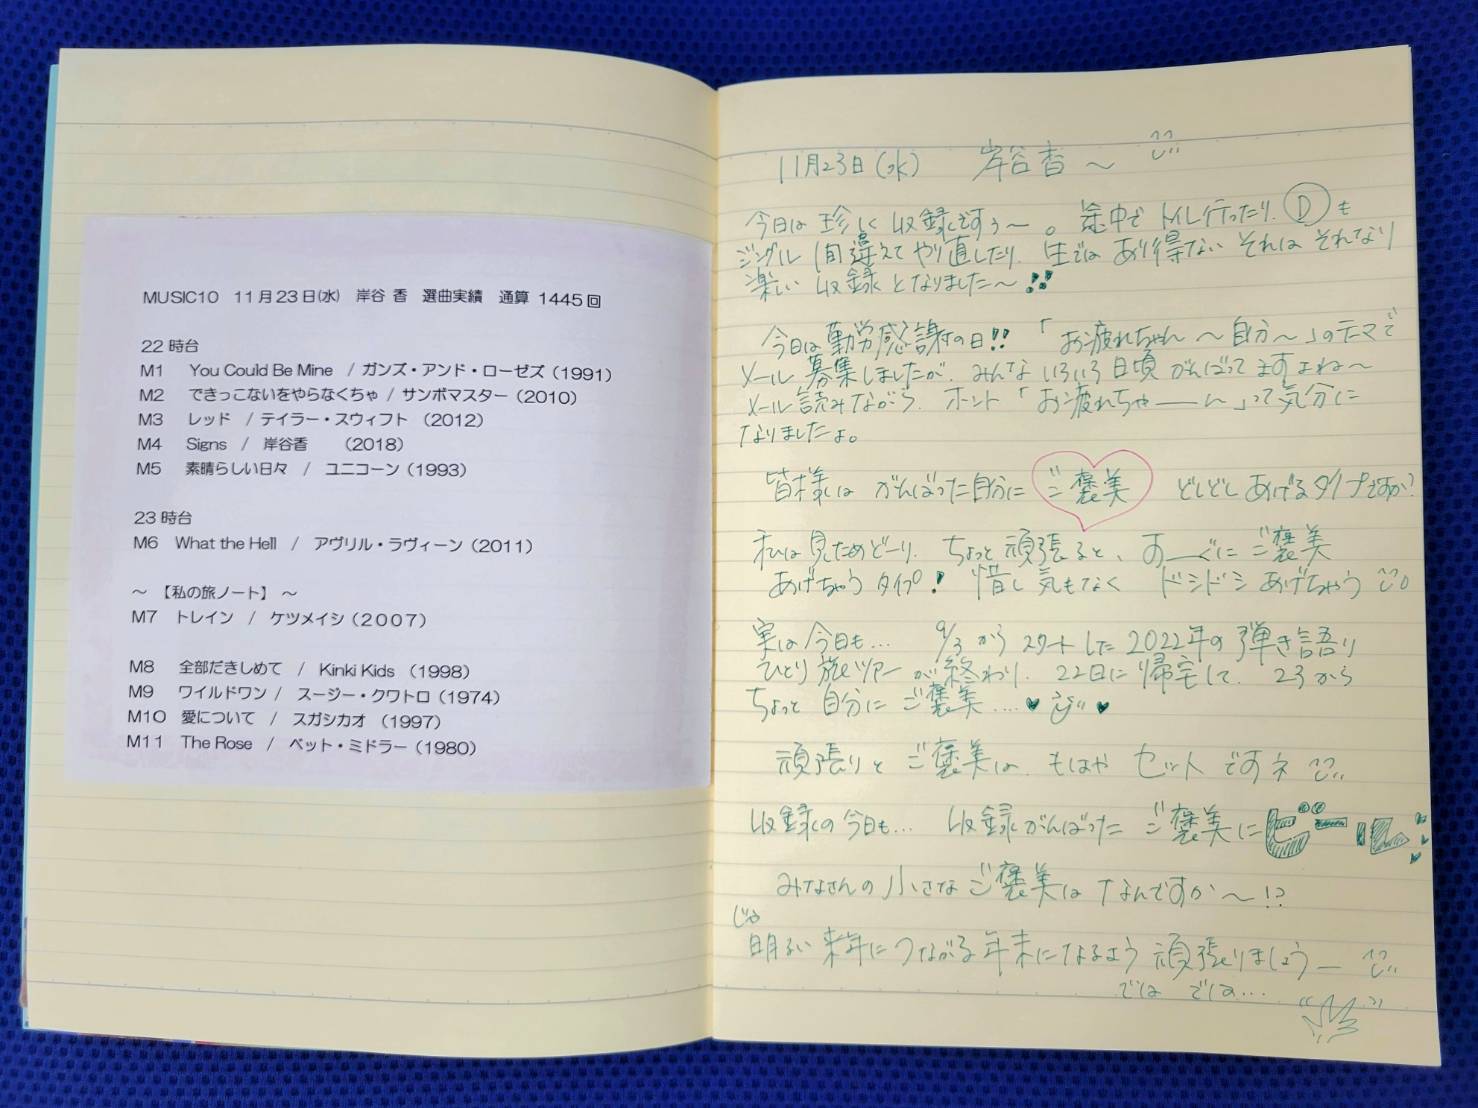 MUSIC10 11月23日(水) 岸谷 香 選曲実績 通算 1445回
22時台
M1 You Could Be Mine / ガンズ・アンド・ローゼズ(1991)
M2 できっこないをやらなくちゃ / サンボマスター(2010)
M3 レッド / テイラー・スウィフト (2012)
M4 Signs / 岸谷香 (2018)
M5 素晴らしい日々 / ユニコーン(1993)
23時台
M6 What the Hell / アヴリル・ラヴィーン(2011)
～ 【私の旅ノート】 ～
M7 トレイン / ケツメイシ(2007)
M8 全部だきしめて / Kinki Kids (1998)
M9 ワイルドワン / スージー・クワトロ(1974)
M10 愛について / スガシカオ (1997)
M11 The Rose / ベット・ミドラー(1980)
11月23日(水) 岸谷香～
今日は珍しく収録ですぅ～。途中でトイレ行ったり、Ⓓも
ジングル間違えてやり直したり、生ではあり得ない それは それなり
楽しい収録となりました～!!
今日は勤労感謝の日!!「お疲れちゃん～自分～」のテーマで
メール募集しましたが、みんないろいろ日頃がんばってますよね～
メール読みながら、ホント「お疲れちゃーーん」って気分に
なりましたよ。
皆様は がんばった自分に ご褒美 どしどしあげるタイプですか?
私は見ためどーり、ちょっと頑張ると、すーぐに ご褒美
あげちゃうタイプ! 惜し気もなく ドシドシあげちゃう
実は今日も… 9/3から スタートした2022年の弾き語り
ひとり旅ツアーが終わり、22日に帰宅して、23から
ちょっと自分にご褒美….♥ ♥
頑張りと ご褒美は、もはや セットですネ
収録の今日も… 収録がんばった ご褒美にビール
みなさんの小さなご褒美はなんですか～!?
じゃ
明るい来年につながる年末になるよう 頑張りましょうー
では では…